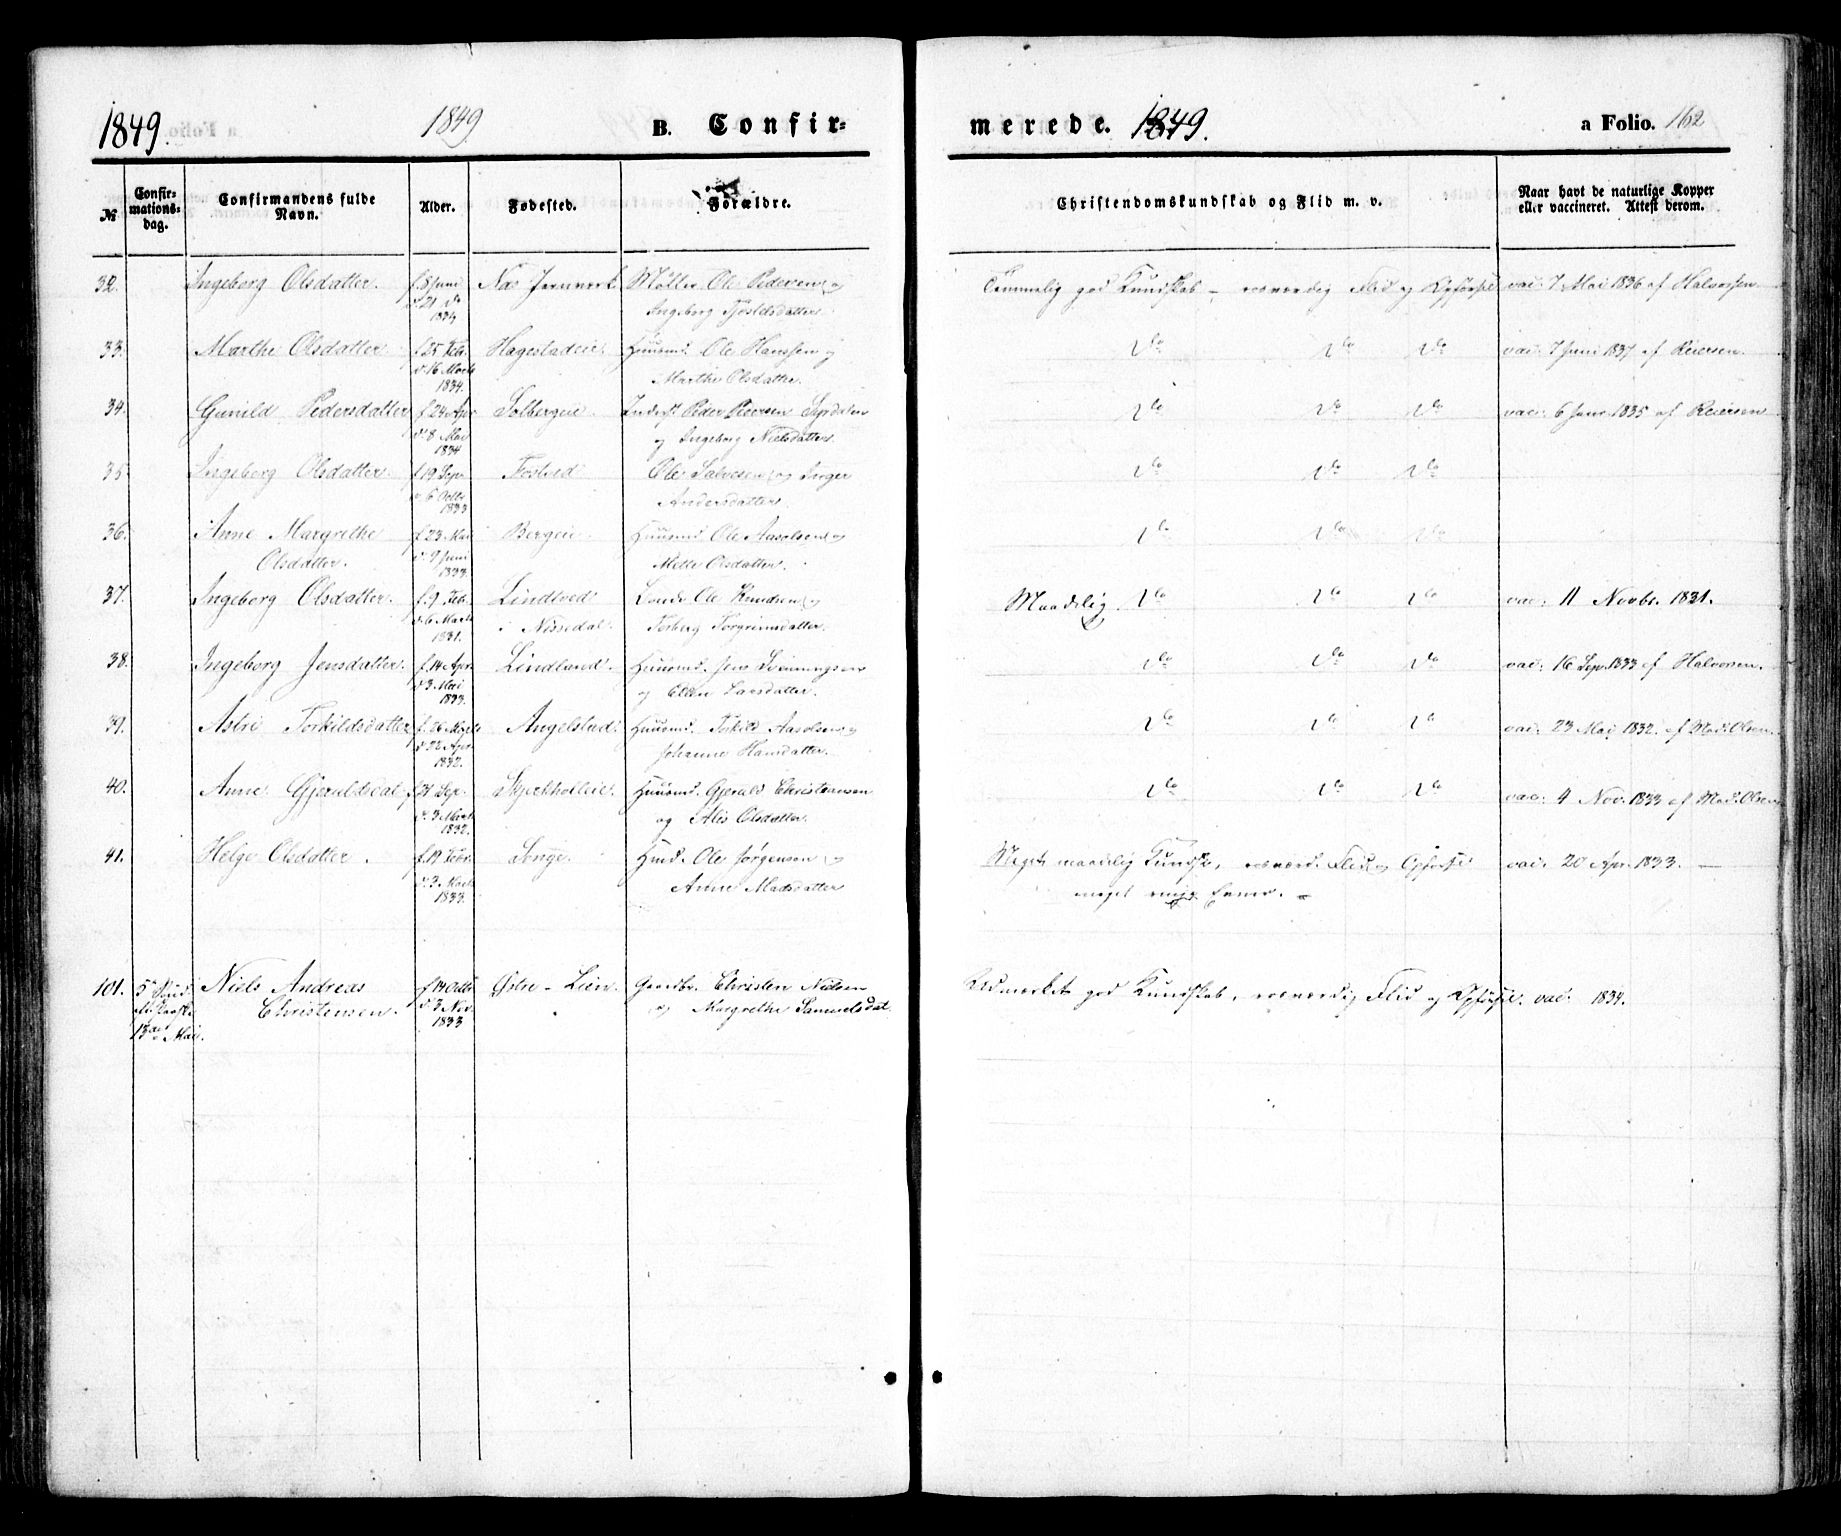 1849. 1849 B. Confirmerede. 1849. a Folio. 162
№ Confirmationsdag. Confirmandens fulde Navn. Alder. Fødested. Forældre. Christendomskundskab og Flid m. v. Naar havt de naturlige Kopper eller vaccineret. Attest derom.
32. Ingeborg Olsdatter. f. 8 Juni Næs Jernverk Møller Ole Pedersen og Temmelig god Kundskab – roesværdig Flid og Opførsel vac: 7 Mai 1836 af Halvorsen
d. 21 do Ingeborg
1834
33. Marthe Olsdatter f. 25 Feb. Hagestadeie. Huusmd. Ole Hanssen og do do do vac: 7 Juni 1837 af Reiersen.
d. 16 Marts Marthe Olsdatter.
1834.
34. Gunild Pedersdatter f. 24 Apr Solbergeie. Inderst Peder do do do vac: 6 1835 af Reiersen
d. 8 Mai og Ingeborg Nielsdatter.
1834
35. Ingeborg Olsdatter. f. 19 Sep. Fosved Ole Salvesen og Inger do do do
d. 6 Octbr Andersdatter.
1833
36. Anne Margrethe f. 23 Mai Bergeie. Huusmd Ole Aasolsen og do do do
Olsdatter. d. 9 Juni Mette Olsdatter.
1833.
37. Ingeborg Olsdatter. f. 9 Feb. Lindtved Ole Knudsen og Maadelig do do do vac: 11 Novbr. 1831.
d. 6 Marts i Nissedal. Torberg Torgrimsdatter.
1831.
38. Ingeborg Jensdatter. f. 14 Apr. Lindland. Huusmd. Jens do do do vac: 16 Sep. 1833 af Halvorsen.
d. 3 Mai og Ellen Larsdatter.
1833.
39. Astri Torkildsdatter f. 26 Marts Angelstad. Huusmd. Torkild Aasolsen og do do do vac: 23 Mai 1832. af Mad: Olsen.
d. 22 Apr. Johanne Hansdatter.
1832.
40. Anne Sep. Huusmd. Gjerald Christensen do do do vac: 4 Nov. 1833 af Mad: Olsen
d. 3 og Alis Olsdatter.
1832.
41. Helge Olsdatter. f. 19 Febr. Songe. Hmd. Ole Jørgensen og Meget maadelig Kundsk., roesværd. Flid og Opførsel vac: 20 Apr. 1833. —
d. 3 Marts Anne Madsdatter meget ringe Evner. –
1833.
101. 5 Niels Andreas f. 14 Octb Østre–Lien. Gaardbr. Christen Nielsen Udmærket god Kundskab, roesværdig Flid og Opførsel. vac. 1834.
Christensen. d. 3 Nov. og Margrethe Samuelsdat.
13de Mai. 1833